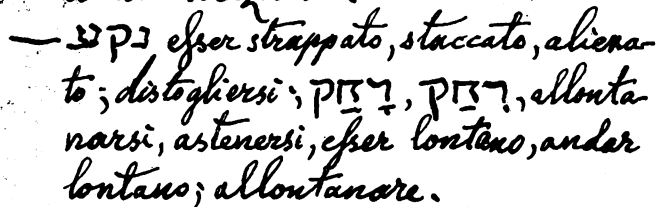 — נקע esser strappato, staccato, aliena-
to; distogliersi; רָחַק, רִחַק, allonta
narsi, astenersi, esser lontano, andar
lontano; allontanare.